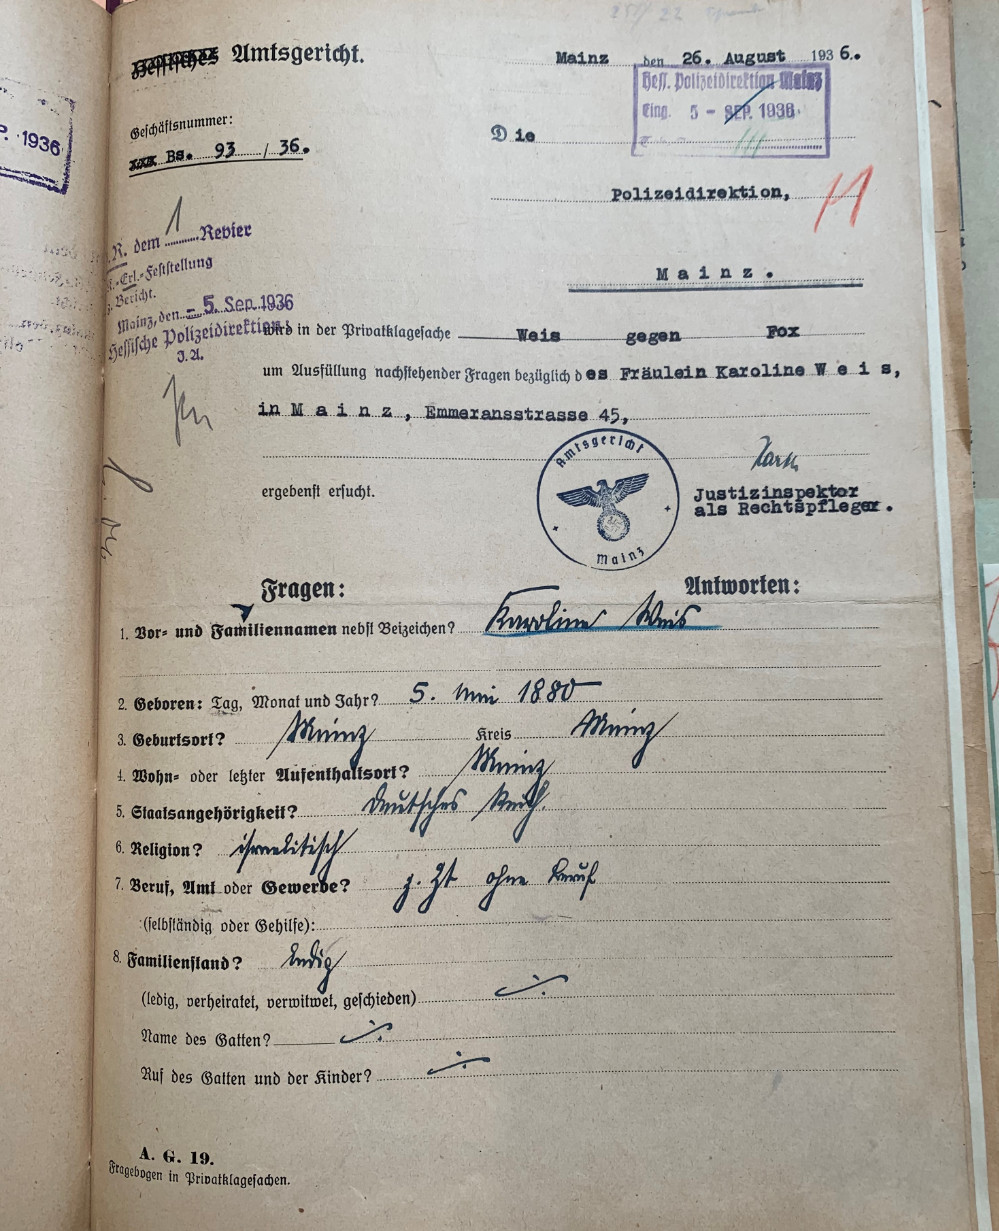 Hessisches Amtsgericht.
Mainz den 26. August 1936.
Hess. Polizeidirektion Mainz
Eing. 5 - SEP. 1936
P. 1936
Geschäftsnummer:
xxx Bs. 93 / 36.
Die
Polizeidirektion,
11
Mainz.
R. dem 1 Revier
-Erl.-Feststellung
Bericht.
Mainz, den - 5. Sep. 1936
Hessische Polizeidirektion
J.A.
wird in der Privatklagesache Weis gegen Fox
um Ausfüllung nachstehender Fragen bezüglich des Fräulein Karoline Weis,
in Mainz, Emmeransstrasse 45,
ergebenst ersucht.
Amtsgericht
Mainz
Justizinspektor
als Rechtspfleger.
Fragen: Antworten:
1. Vor- und Familiennamen nebst Beizeichen? Karoline Weis
2. Geboren: Tag, Monat und Jahr? 5. Mai 1880
3. Geburtsort? Mainz Kreis Mainz
4. Wohn- oder letzter Aufenthaltsort? Mainz
5. Staatsangehörigkeit? Deutsches Reich.
6. Religion? israelitisch
7. Beruf, Amt oder Gewerbe? z. Zt ohne Beruf
(selbständig oder Gehilfe):
8. Familienstand? ledig
(ledig, verheiratet, verwitwet, geschieden) ./.
Name des Gatten? ./.
Ruf des Gatten und der Kinder? ./.
A. G. 19.
Fragebogen in Privatklagesachen.